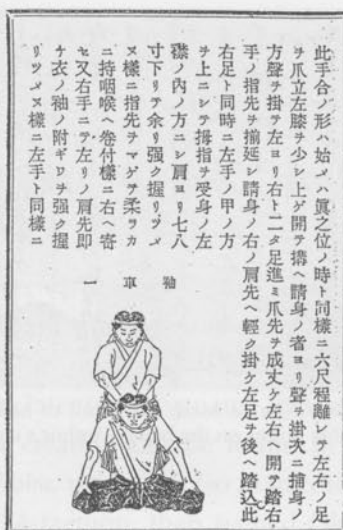 此手合ノ形ハ始メハ眞之位ノ時ト同樣ニ六尺程離レテ左右ノ足
ヲ爪立左膝ヲ少シ上ゲ開テ搆ヘ請身ノ者ヨリ聲ヲ掛次ニ捕身ノ
方聲ヲ掛テ左ヨリ右ト二タ足進ミ爪先ヲ成丈ケ左右ヘ開テ踏右
手ノ指先ヲ揃延シ請身ノ右ノ肩先ヘ輕ク掛ケ左足ヲ後ヘ踏込此
右足ト同時ニ左手ノ甲ノ方
ヲ上ニシテ拇指ヲ受身ノ左
襟ノ內ノ方ニシ肩ヨリ七八
寸下リテ余リ强ク握リツメ
ヌ樣ニ指先ヲマゲテ柔ラカ
ニ持咽喉ヘ卷付樣ニ右ヘ寄
セ又右手ニテ左リノ肩先即
チ衣ノ袖ノ附ギワヲ强ク握
リツメヌ樣ニ左手ト同樣ニ
袖車一